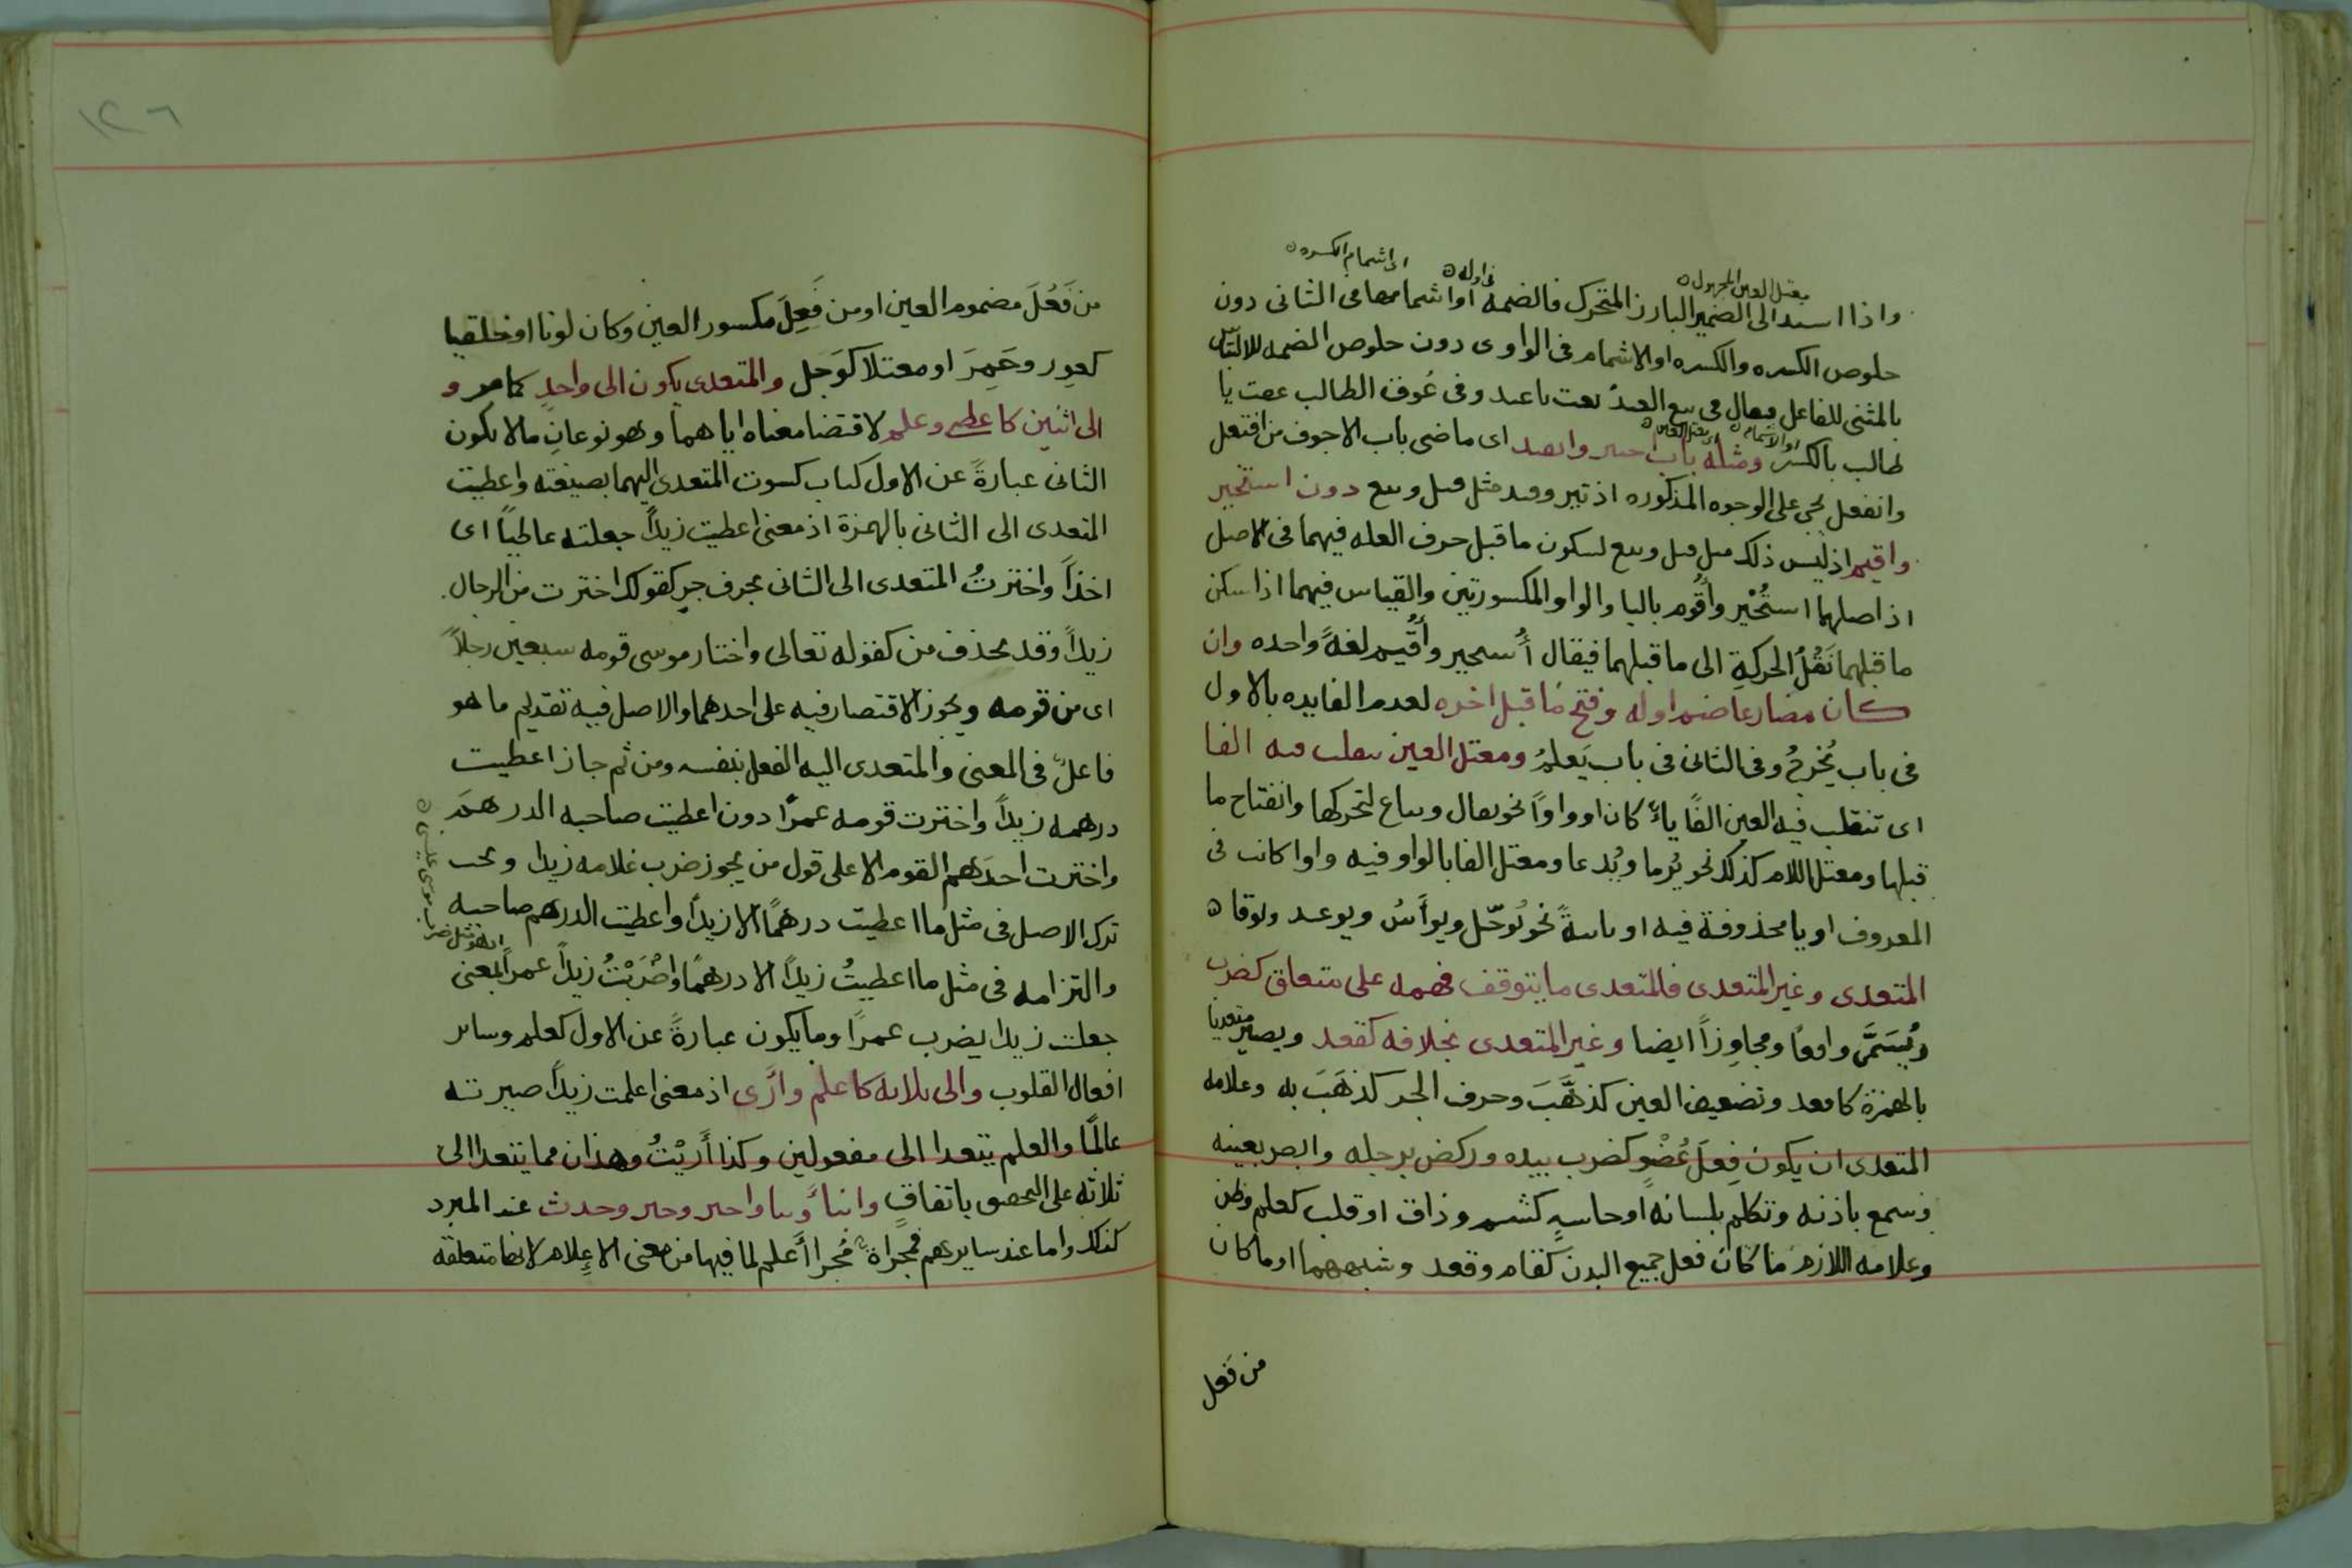 معتل العين المجهول
فى اوله
اى اشمام الكسره
واذا اسند الى الضمير البارز المتحرك فالضمه او اشمامها فى الثانى دون
خلوص الكسره والكسره او الاشمام فى الواوى دون خلوص الضمه للالتباس
بالمثنى للفاعل فيقال فى بيع العبدُ بعت يا عبد وفى عُوق الطالب عقت يا
او الاشمام
اى معتل العين
طالب بالكسر ومثله باب اختير وانقيد اى ماضى باب الاجوف من افتعل
وانفعل يجى على الوجوه المذكوره اذ تير وقيد مثل قيل وبيع دون استخير
واقيم اذ ليس ذلك مثل قيل وبيع لسكون ما قبل حرف العله فيهما فى الاصل
اذ اصلهما استُخْير وأُقْوم باليا والواو المكسورتين والقياس فيهما اذا سكن
ما قبلهما نَقْلُ الحركةِ الى ما قبلهما فيقال أُستخير وأُقيم لغةً واحده وان
كان مضارعا ضم اوله وفتح ما قبل اخره لعدم الفايده بالاول
فى باب يُخرِجُ وفى الثانى فى باب يَعلمُ ومعتل العين ينقلب فيه الفا
اى تنقلب فيه العين الفًا ياءً كان او واوًا نحو يقال ويباع لتحركها وانفتاح ما
قبلها ومعتل اللام كذلك نحو يُرما ويُدعا ومعتل الفا بالواو فيه واوا كانت فى
المعروف او يا محذوفة فيه او ثابتةً نحو يُوجَل ويوأَسُ ويوعد ويوقا
المتعدى وغير المتعدى فالمتعدى ما يتوقف فهمه على متعلق كضرب
ويُسَمَّى واقعًا ومجاوِزاً ايضا وغير المتعدى بخلافه كقعد ويصير متعديا
بالهمزة كاقعد وتضعيف العين كذهَّبَ وحرف الجر كذهَبَ به وعلامه
المتعدى ان يكون فِعلَ عُضْوٍ كضرب بيده وركض برجله وابصر بعينه
وسمع باذنه وتكلم بلسانه او حاسهٍ كشم وذاق او قلب كعلم وظن
وعلامه اللازم ما كان فعل جميع البدن كقام وقعد وشبههما او ما كان
من فَعل
١٢٦
من فَعُلَ مضموم العين او من فَعِلَ مكسور العين وكان لونا او خلقيا
كعوِر وحَمِرَ او معتلا كوَجل والمتعدى يكون الى واحدٍ كما مر و
الى اثنين كاعطى وعلم لاقتضا معناه اياهما وهو نوعانِ ما لا يكون
الثانى عبارةً عن الاول كباب كسوت المتعدى اليهما بصيغته واعطيت
المتعدى الى الثانى بالهمزة اذ معنى اعطيت زيداً جعلته عاطياً اى
اخذاً واخترتُ المتعدى الى الثانى بحرف جرٍ كقولك اخترت من الرجال
زيداً وقد يحذف من كقوله تعالى واختار موسى قومه سبعين رجلاً
اى من قومه ويجوز الاقتصار فيه على احدهما والاصل فيه تقديم ما هو
فاعلٌ فى المعنى والمتعدى اليه الفعل بنفسه ومن ثم جاز اعطيت
درهمه زيداً واخترت قومه عمرًا دون اعطيت صاحبه الدرهمَ
واخترت احدَهم القوم الا على قول من يجوز ضرب غلامه زيدا ويجب
ترك الاصل فى مثل ما اعطيت درهمًا الا زيداً واعطيت الدرهم صاحبه
ضرب موسى عيسى
والتزامه فى مثل ما اعطيتُ زيداً الا درهمًا واضْرَبْتُ زيداً عمراً بمعنى
جعلت زيدا يضرب عمرًا وما يكون عبارةً عن الاول كعلم وساير
افعال القلوب والى ثلاثه كاعلم وارَى اذ معنى اعلمت زيداً صيرته
عالمًا والعلم يتعدا الى مفعولين وكذا أَرَيْتُ وهذان مما يتعدا الى
ثلاثه على التحقيق باتفاقٍ وانبأ ونبا واخبر وخبر وحدث عند المبرد
كذلك واما عند سايرهم فمجراة مُجرا أعلم لما فيها من معنى الاعلام لانها متعلقه